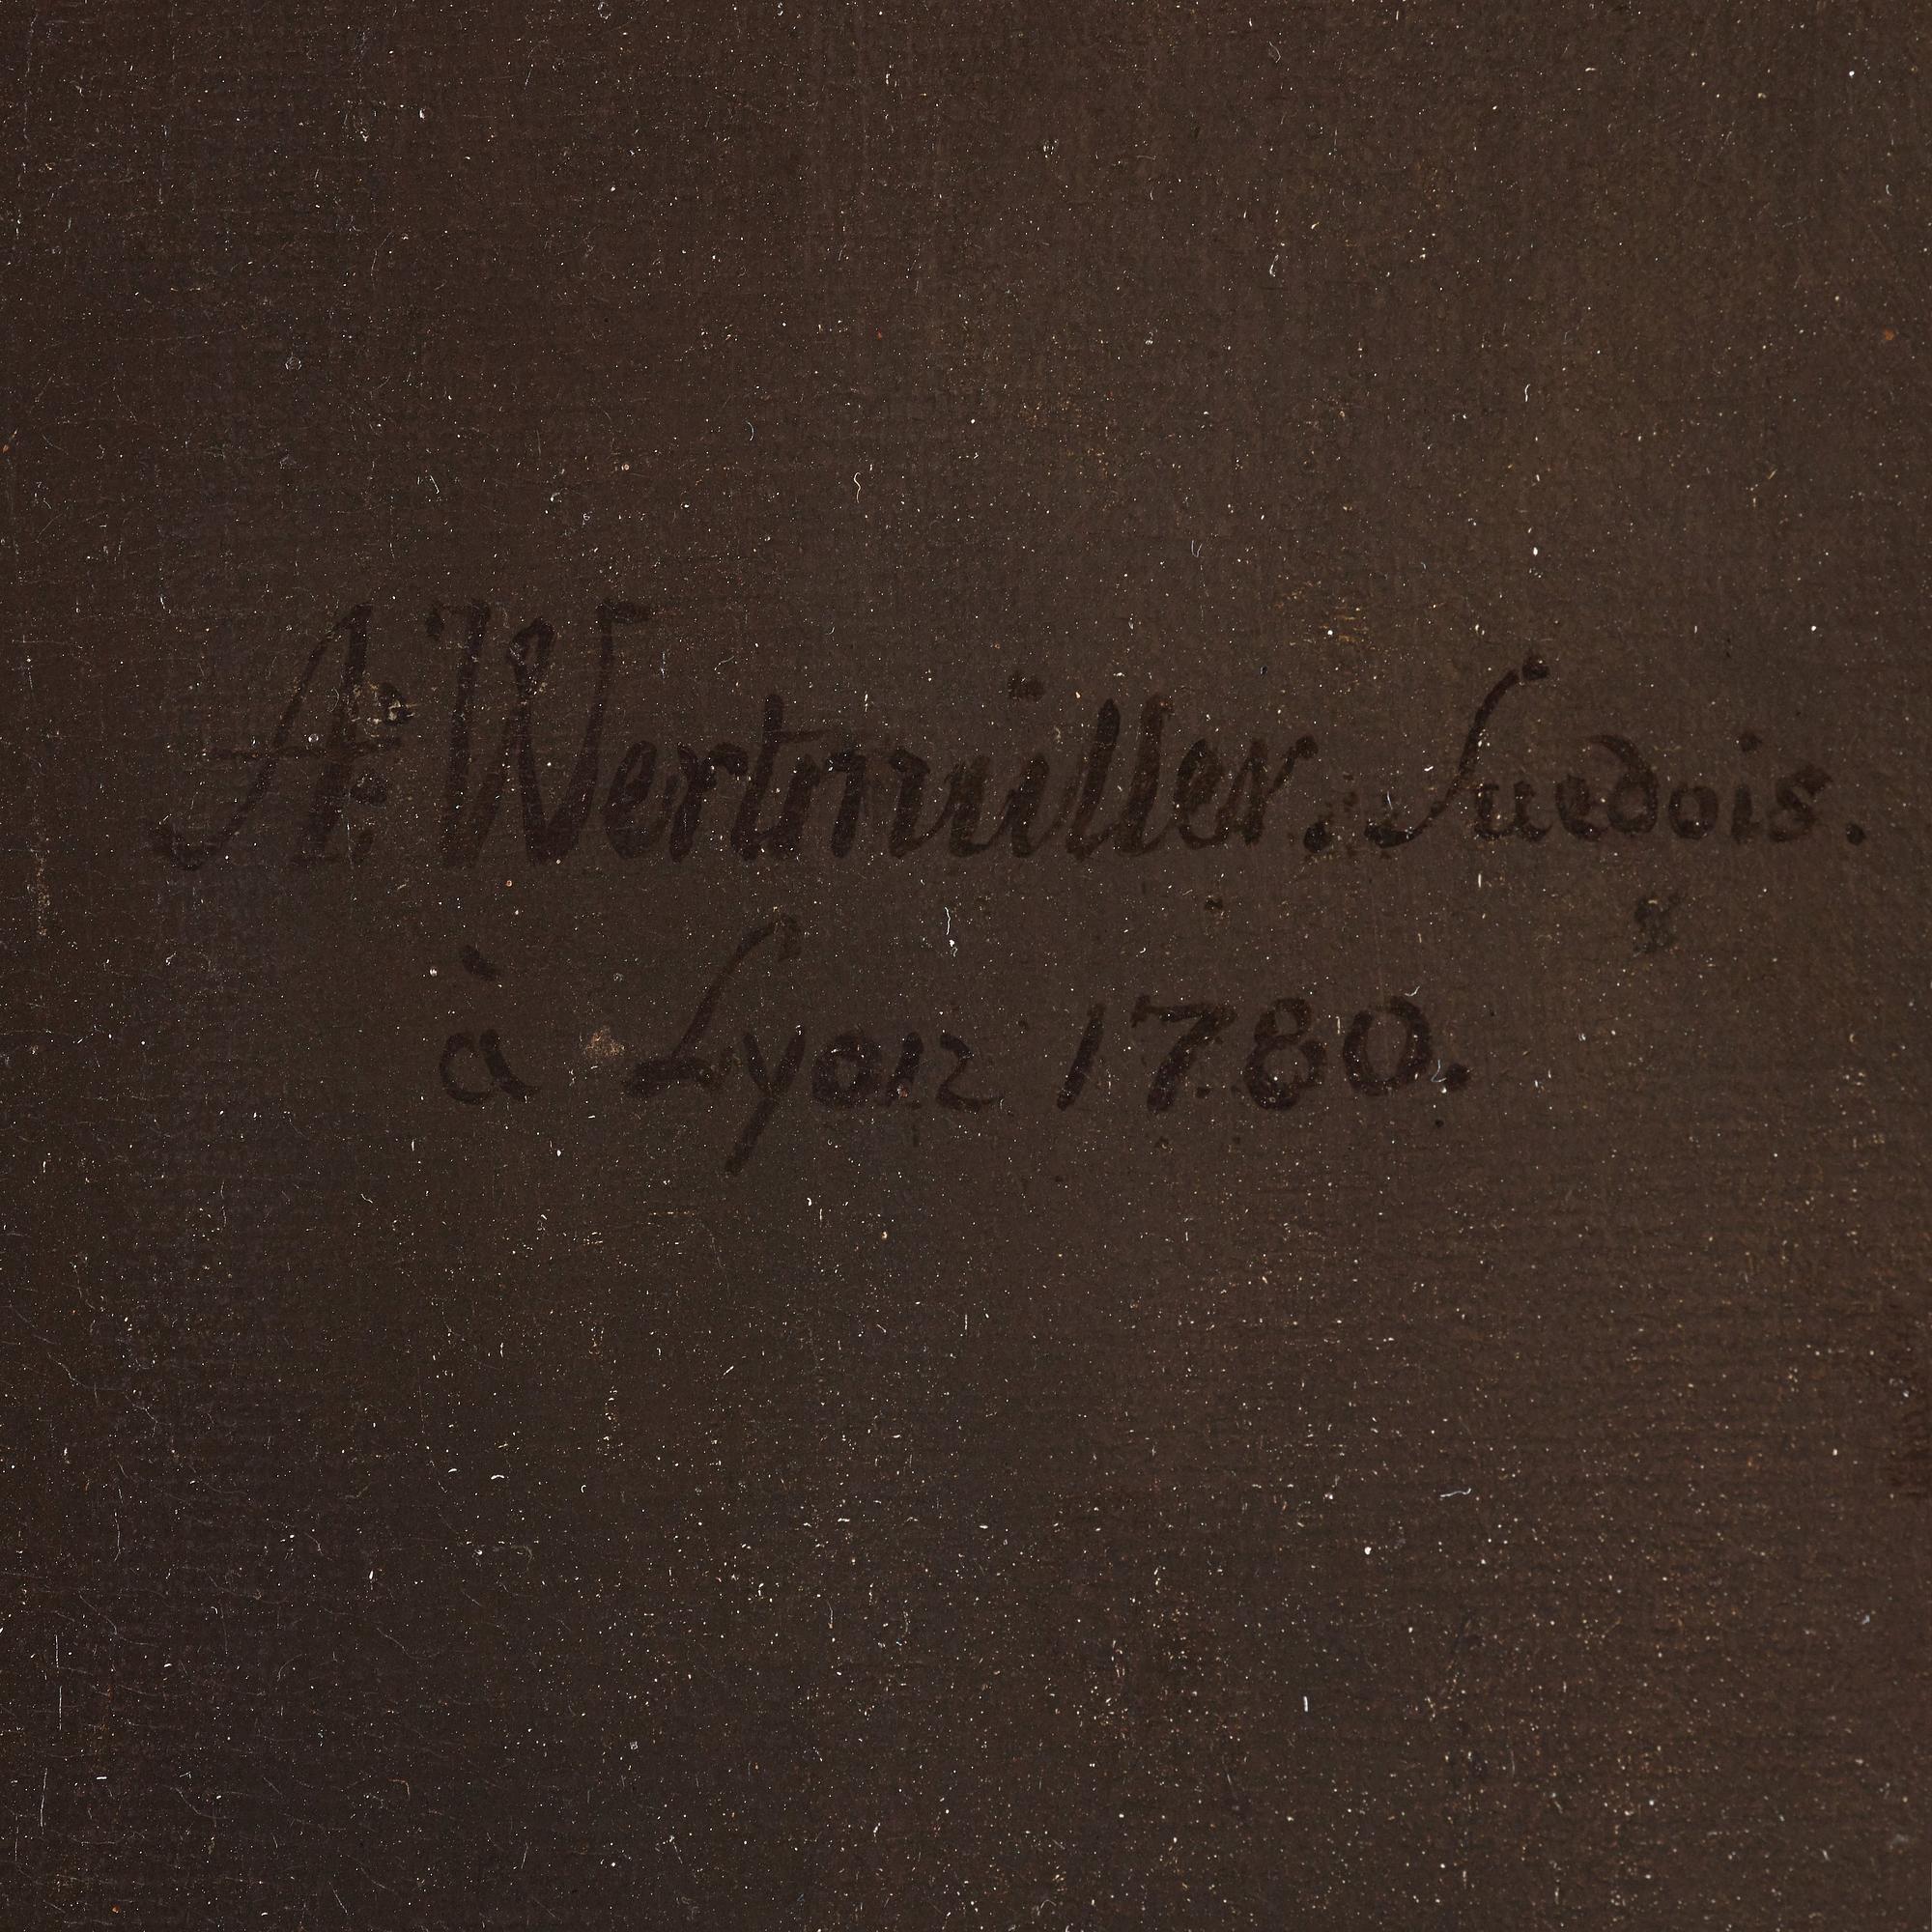 A: Wertmüller. Suedois.
à Lyon 1780.